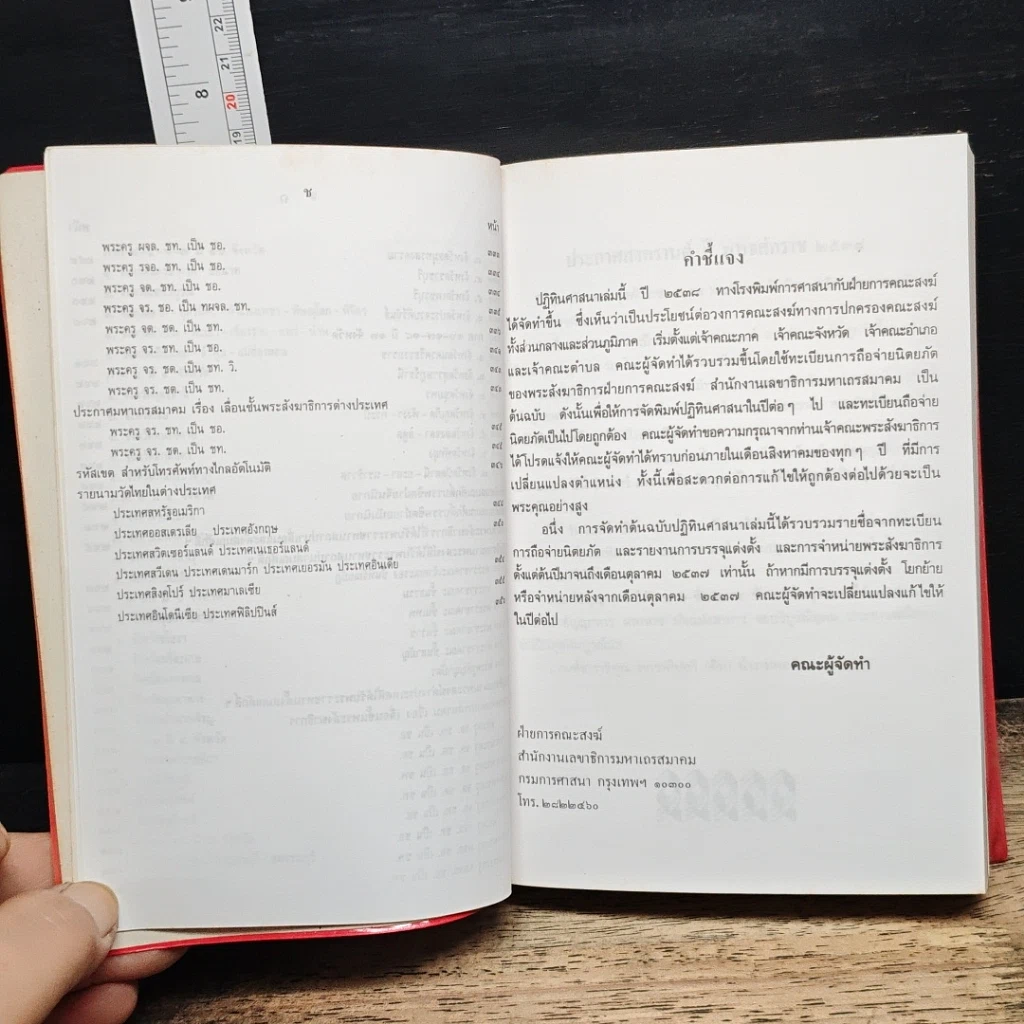 ช
หน้า
พระครู ผจล. ชท. เป็น ชอ.
พระครู รจอ. ชท. เป็น ชอ.
พระครู จต. ชท. เป็น ชอ.
พระครู จร. ชอ. เป็น ทผจล. ชท.
พระครู จต. ชต. เป็น ชท.
พระครู จร. ชท. เป็น ชอ.
พระครู จร. ชต. เป็น ชท. วิ.
พระครู จร. ชต. เป็น ชท.
ประกาศมหาเถรสมาคม เรื่อง เลื่อนชั้นพระสังฆาธิการต่างประเทศ
พระครู จร. ชท. เป็น ชอ.
พระครู จร. ชต. เป็น ชท.
รหัสเขต สำหรับโทรศัพท์ทางไกลอัตโนมัติ
รายนามวัดไทยในต่างประเทศ
ประเทศสหรัฐอเมริกา
ประเทศออสเตรเลีย ประเทศอังกฤษ
ประเทศสวิตเซอร์แลนด์ ประเทศเนเธอร์แลนด์
ประเทศสวีเดน ประเทศเดนมาร์ก ประเทศเยอรมัน ประเทศอินเดีย
ประเทศสิงคโปร์ ประเทศมาเลเซีย
ประเทศอินโดนีเซีย ประเทศฟิลิปปินส์
คำชี้แจง
ปฏิทินศาสนาเล่มนี้ ปี ๒๕๓๘ ทางโรงพิมพ์การศาสนากับฝ่ายการคณะสงฆ์
ได้จัดทำขึ้น ซึ่งเห็นว่าเป็นประโยชน์ต่อวงการคณะสงฆ์ทางการปกครองคณะสงฆ์
ทั้งส่วนกลางและส่วนภูมิภาค เริ่มตั้งแต่เจ้าคณะภาค เจ้าคณะจังหวัด เจ้าคณะอำเภอ
และเจ้าคณะตำบล คณะผู้จัดทำได้รวบรวมขึ้นโดยใช้ทะเบียนการถือจ่ายนิตยภัต
ของพระสังฆาธิการฝ่ายการคณะสงฆ์ สำนักงานเลขาธิการมหาเถรสมาคม เป็น
ต้นฉบับ ดังนั้นเพื่อให้การจัดพิมพ์ปฏิทินศาสนาในปีต่อๆ ไป และทะเบียนถือจ่าย
นิตยภัตเป็นไปโดยถูกต้อง คณะผู้จัดทำขอความกรุณาจากท่านเจ้าคณะพระสังฆาธิการ
ได้โปรดแจ้งให้คณะผู้จัดทำได้ทราบก่อนภายในเดือนสิงหาคมของทุกๆ ปี ที่มีการ
เปลี่ยนแปลงตำแหน่ง ทั้งนี้เพื่อสะดวกต่อการแก้ไขให้ถูกต้องต่อไปด้วยจะเป็น
พระคุณอย่างสูง
อนึ่ง การจัดทำต้นฉบับปฏิทินศาสนาเล่มนี้ได้รวบรวมรายชื่อจากทะเบียน
การถือจ่ายนิตยภัต และรายงานการบรรจุแต่งตั้ง และการจำหน่ายพระสังฆาธิการ
ตั้งแต่ต้นปีมาจนถึงเดือนตุลาคม ๒๕๓๗ เท่านั้น ถ้าหากมีการบรรจุแต่งตั้ง โยกย้าย
หรือจำหน่ายหลังจากเดือนตุลาคม ๒๕๓๗ คณะผู้จัดทำจะเปลี่ยนแปลงแก้ไขให้
ในปีต่อไป
คณะผู้จัดทำ
ฝ่ายการคณะสงฆ์
สำนักงานเลขาธิการมหาเถรสมาคม
กรมการศาสนา กรุงเทพฯ ๑๐๓๐๐
โทร. ๒๘๒๒๔๖๐
8
22
21
20
19